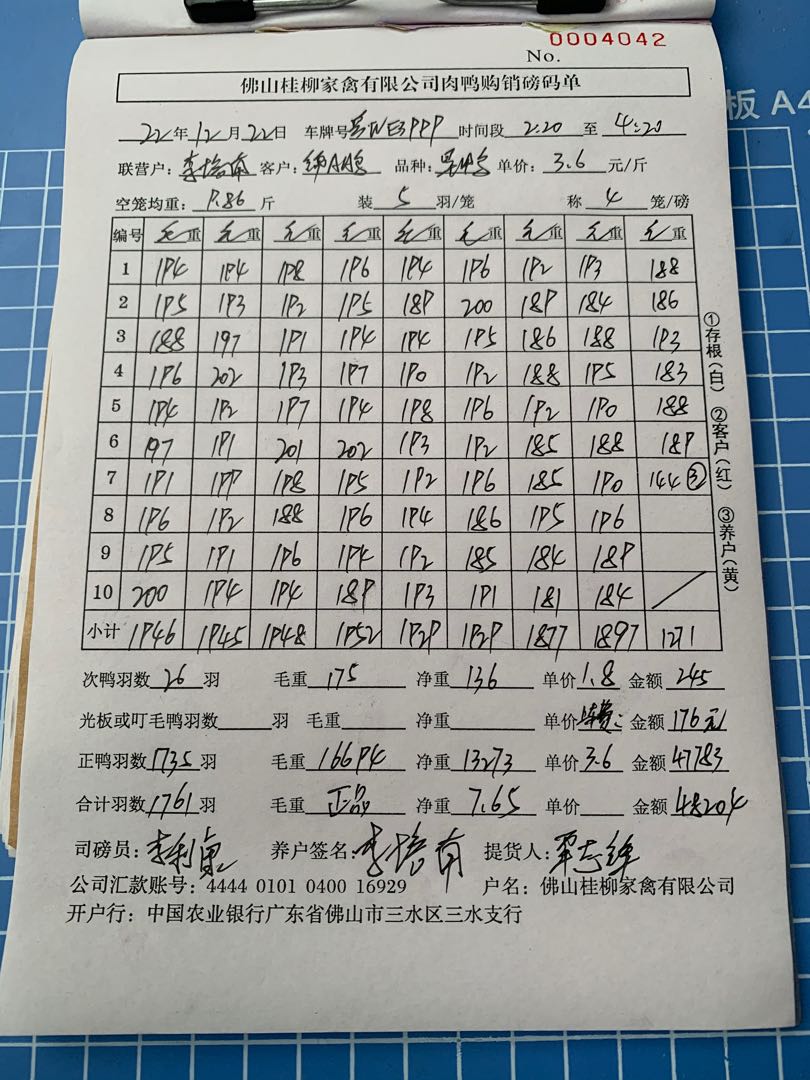 No. 0004042
佛山桂柳家禽有限公司肉鸭购销磅码单
22年12月22日 车牌号 时间段 2:20 至 4:20
联营户：李培南 客户： 品种： 单价：3.6 元/斤
空笼均重：9.86 斤 装 5 羽/笼 称 4 笼/磅
编号 毛重 毛重 毛重 毛重 毛重 毛重 毛重 毛重 毛重
1 194 194 198 196 194 196 192 193 188
2 195 193 192 195 189 200 189 184 186
3 188 197 191 194 194 195 186 188 193
4 196 202 193 197 190 192 188 195 183
5 194 192 197 194 198 196 192 190 188
6 197 191 201 202 193 192 185 188 189
7 191 199 198 195 192 196 185 190 144 ③
8 196 192 188 196 194 186 195 196
9 195 191 196 194 192 185 184 189
10 200 194 194 189 193 191 181 184 /
小计 1946 1945 1948 1952 1929 1929 1877 1897 1271
次鸭羽数 26 羽 毛重 175 净重 136 单价 1.8 金额 245
光板或叮毛鸭羽数 羽 毛重 净重 单价 金额 176元
正鸭羽数 1735 羽 毛重 16694 净重 13273 单价 3.6 金额 47783
合计羽数 1761 羽 毛重 正品 净重 7.65 单价 金额 48204
司磅员： 养户签名：李培南 提货人：
公司汇款账号：4444 0101 0400 16929 户名：佛山桂柳家禽有限公司
开户行：中国农业银行广东省佛山市三水区三水支行
①存根(白) ②客户(红) ③养户(黄)
板 A4